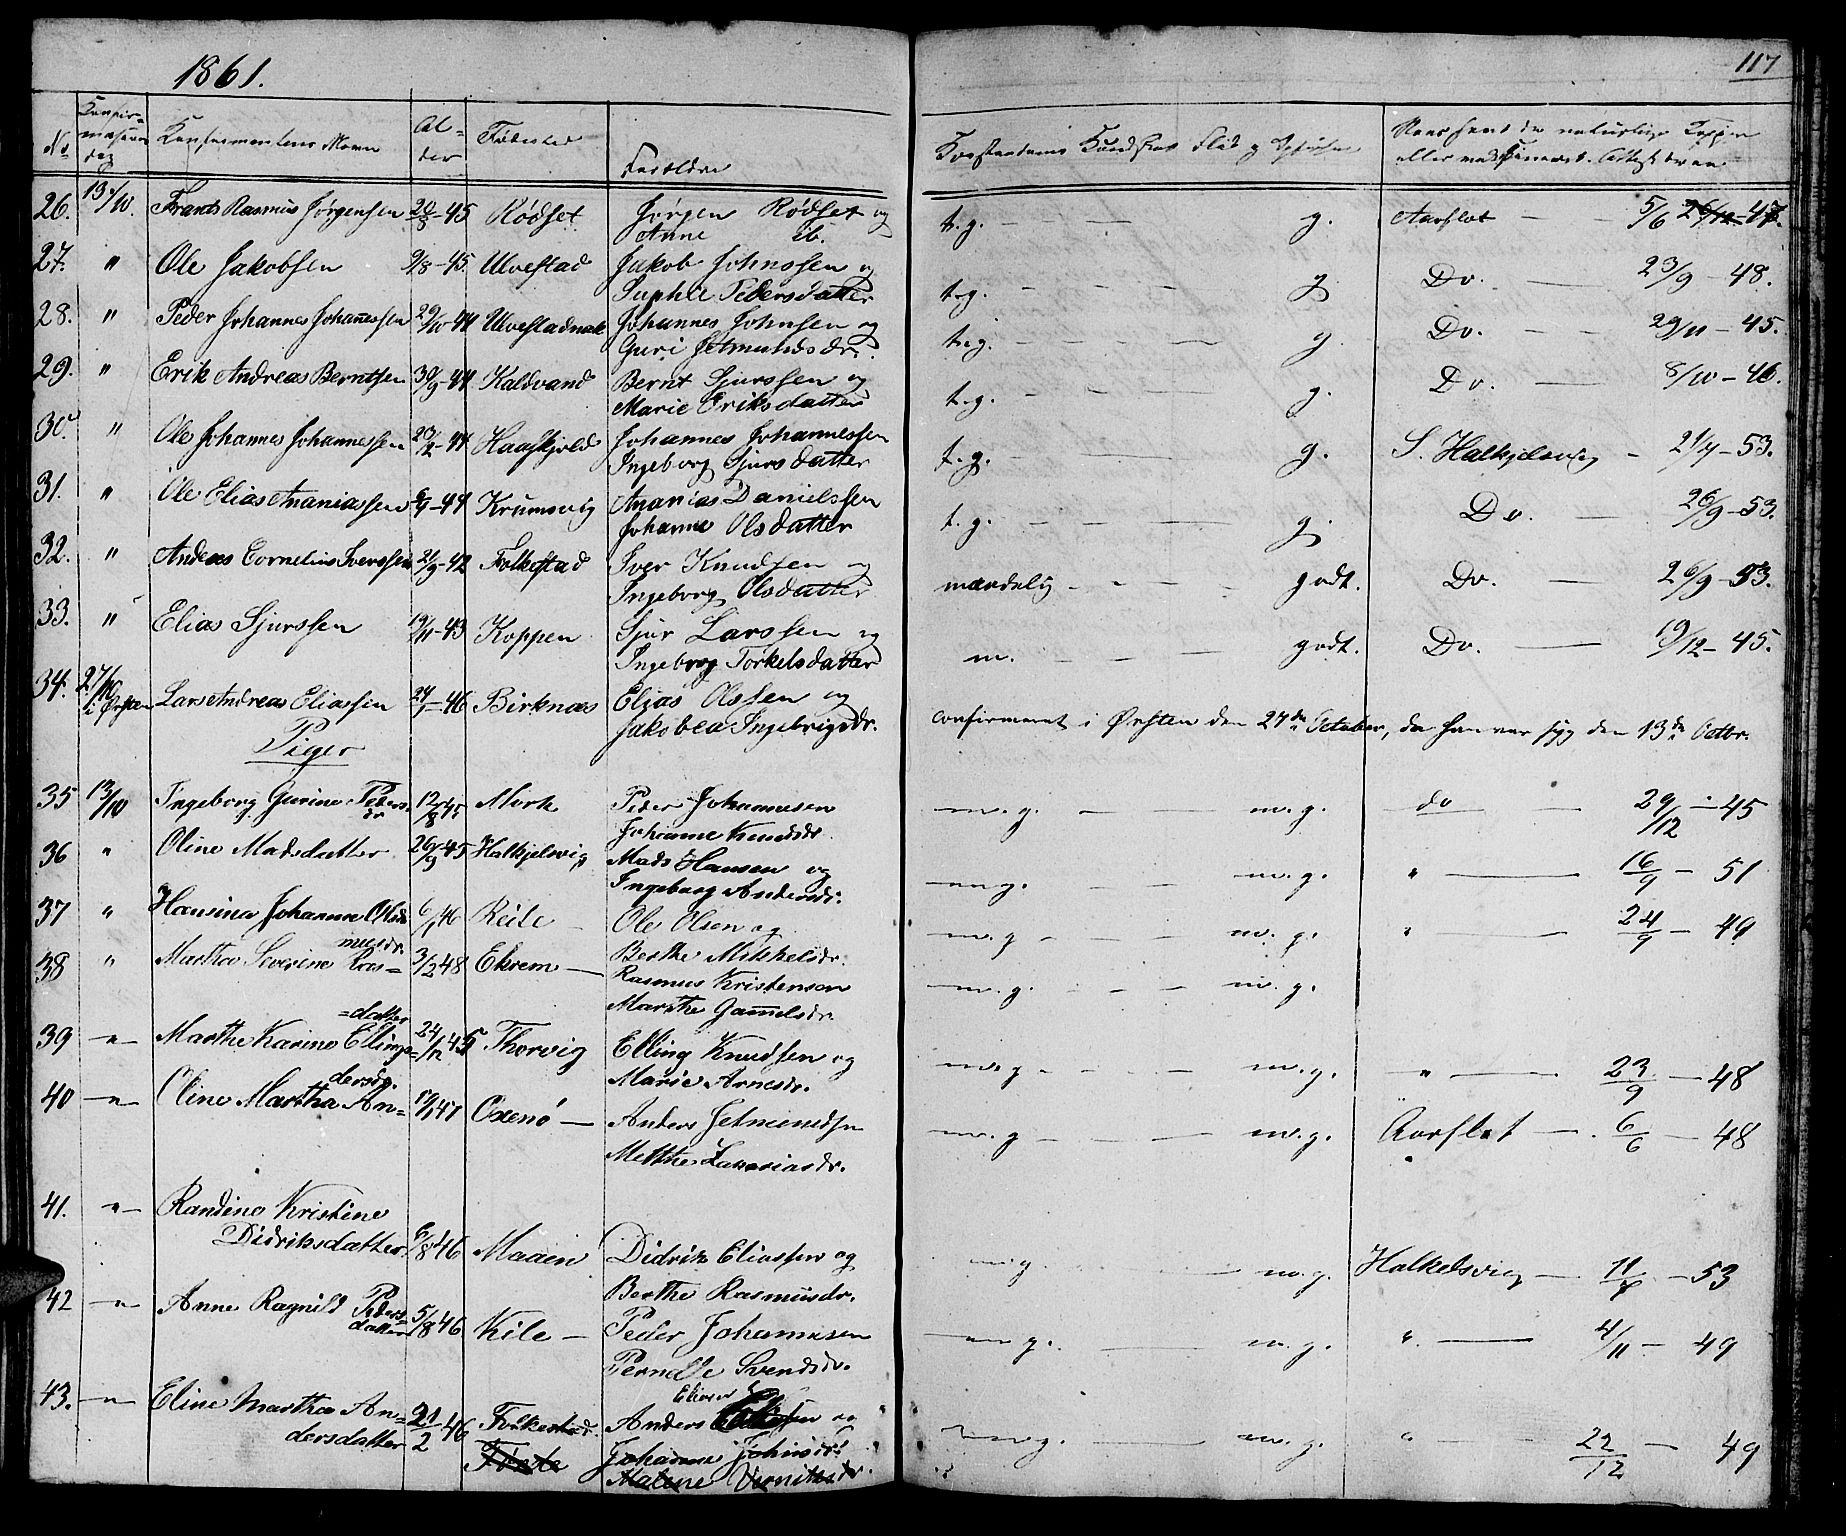 1861.
117
No
Confirmationsdag
Confirmantens Navn
Alder
Fødested
Forældre
Forstandens Kundskab Flid og Opførsel
Naar han ved de naturlige Kopper eller vaccineret. Attest derom
26. 13/10. Frants Rasmus Jørgensen 20/8-45 Rødset Jørgen Rødset og t.g. - - - g. Aarflot - - 5/6 47.
Anne ib.
27. " Ole Jakobsen 9/8-45. Ulvestad Jakob Johnssen og t.g. - - - g. Do. - - 23/9-48.
Pedersdatter
28. " Peder Johannes Johannessen 29/10-44 Ulvestadnak Johannes Johnsen og t.g. - - - g. Do. - - 29/11-45.
Guri Jetmundsdr.
29. " Erik Andreas Berntsen 30/9-44 Kaldvand Bernt Sjurssen og t.g. - - - g. Do. - 8/10-46.
Marie Eriksdatter
30. " Ole Johannes Johannessen 23/2-44 Haaskjold Johannes Johannessen t.g. - - - g. S. Halkjelsvig - 21/7-53.
Ingeborg Sjursdatter
31. " Ole Elias Ananiassen 6/9-44 Krumsvig Ananias Danielssen t.g. - - - g. Do. - 26/9-53.
Johanne Olsdatter
32. " Andreas Cornelius Iverssen 21/9-42 Folkestad Iver Knudsen og maadelig - - - godt. Do. - 26/9-53.
Ingeborg Olsdatter
33. " Elias Sjurssen 19/11-43 Koppen Sjur Larssen og m. - - - godt. Do. - 19/12-45.
Ingeborg Torkelsdatter
34. 27/10 i Ørsten Lars Andreas Eliassen 24/1-46 Birknæs Elias Olssen og confirmeret i Ørsten den 27de October, da han var syg den 13de Octbr.
Jakobea Ingebrigsdr.
Piger
35 13/10 Ingeborg Gurine Pedersdr 12/8 45 Mork Peder Johannesen m.g. - - m.g. do - 29/12-45
Johanne Knudsdr.
36 " Oline Madsdatter 26/9 45 Halkjelsvig Mads Hansen og m.g. - m.g. " - 16/9-51
Ingeborg Andersdr.
37 " Hansine Johanne Olsdr 6/1 46 Reite - Ole Olsen og m.g - - m.g. " - 24/9-49
Berthe Mikkelsdr.
38 " Martha Severine Rasmusdr. 3/2 48 Ekrem - Rasmus Kristensen m.g. - - m.g.
Marthe Gammelsdr.
39 -"- Marthe Karine Ellingsdatter 24/12 45 Thorvig Elling Knudsen og m.g - - m.g. " - 23/9-48
Marie Arnesdr.
40 -"- Oline Martha Andersdr. 19/1 47 Oxenø - Anders Jetmundsn m.g - - m.g. Aarflot - 6/6-48
Mette Zakariasdr.
41. -"- Randine Kristine
Didriksdatter 6/8 46 Maaen Didrik Eliassen og m.g. - m.g. Halkelsvig - 53
Berthe Rasmusdr.
42 -"- Anne Ragnild Pedersdatter 5/8 46 Kile - Peder Johannesen m.g. - m.g. " - 4/11-49
Pernille Svendsdr.
43. -"- Eline Martha Andersdatter 21/2 46 Folkestad Anders og m.g. - m.g. " - 22/12-49
Johanne Johnsdr.
Malene